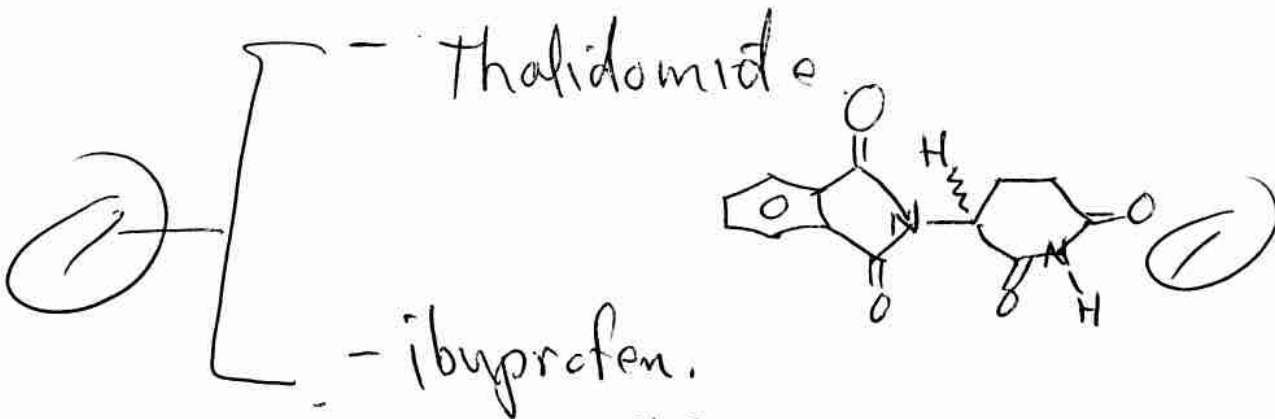 - Thalidomide
O
H
N
O
O
O
N
H
1
1
- ibuprofen.